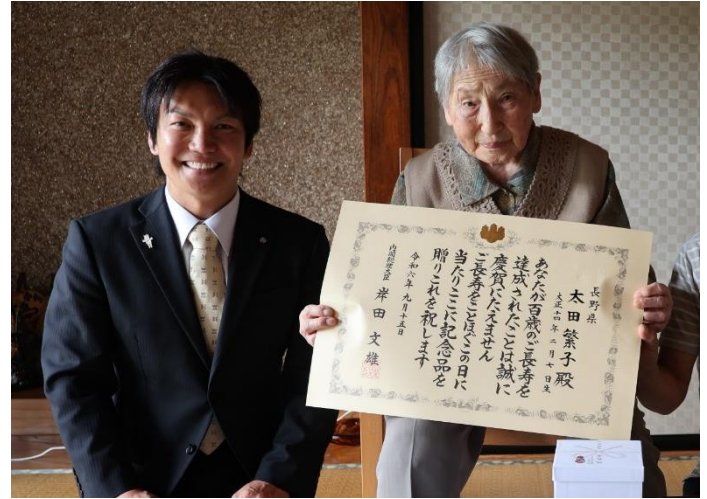 長野県
太田繁子殿
大正十四年二月七日生
あなたが百歳のご長寿を
達成されたことは誠に
慶賀にたえません
ご長寿をことほぐこの日に
当たりここに記念品を
贈りこれを祝します
令和六年九月十五日
内閣総理大臣 岸田文雄